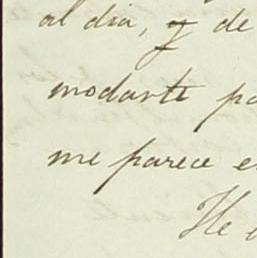 al dia, y de
modarte pa
me parece e
He